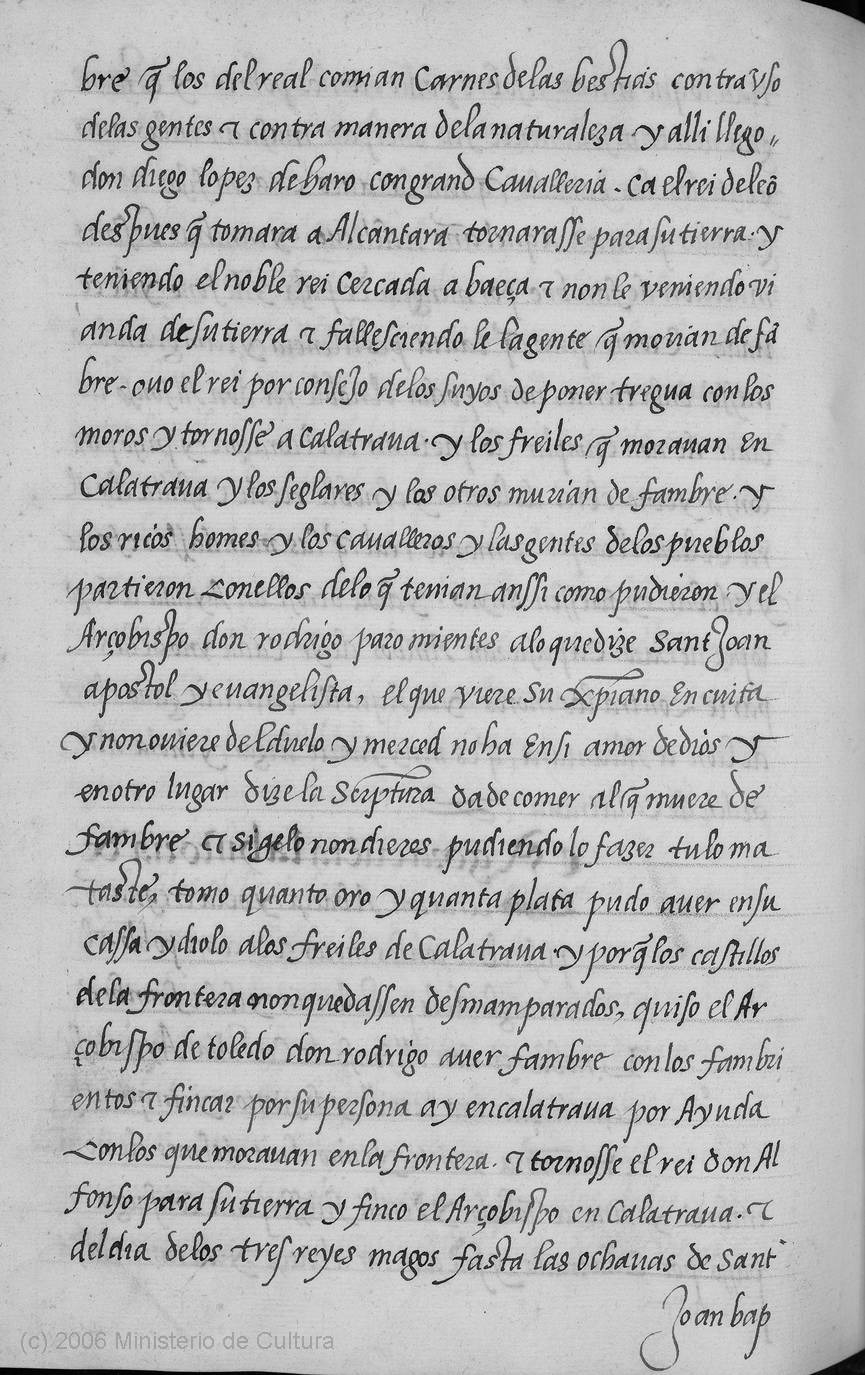 bre q̃ los del real comian Carnes delas bestias contra vso
delas gentes ⁊ contra manera dela naturaleza y alli llego
don diego lopez de haro congrand Cavalleria. Ca el rei de leõ
despues q̃ tomara a Alcantara tornarasse para su tierra. y
teniendo el noble rei Cercada a baeça ⁊ non le veniendo vi
anda de su tierra ⁊ fallesciendo le la gente q̃ morian de fã
bre. ovo el rei por consejo delos suyos de poner tregua con los
moros y tornosse a Calatrava. y los freiles q̃ moravan En
Calatrava y los seglares y los otros murian de fambre. y
los ricos homes y los cavalleros y las gentes delos pueblos
partieron Conellos delo q̃ tenian anssi como pudieron y el
Arçobispo don rodrigo paro mientes alo que dize Sant Joan
apostol y evangelista, el que viere Su Xpiano En cuita
y non oviere del duelo y merced no ha En si amor de dios y
en otro lugar dize la Scriptura da de comer al q̃ muere de
fambre ⁊ si gelo non dieres pudiendo lo fazer tu lo ma
taste, tomo quanto oro y quanta plata pudo aver en su
cassa y diolo alos freiles de Calatrava y porq̃ los castillos
dela frontera non quedassen desmamparados, quiso el Ar
çobispo de toledo don rodrigo aver fambre con los fambri
entos ⁊ fincar por su persona ay en calatrava por Ayuda
Conlos que moravan en la frontera. ⁊ tornosse el rei don Al
fonso para su tierra y finco el Arçobispo en Calatrava. ⁊
del dia delos tres reyes magos fasta las ochavas de Sant
Joan bap
(c) 2006 Ministerio de Cultura